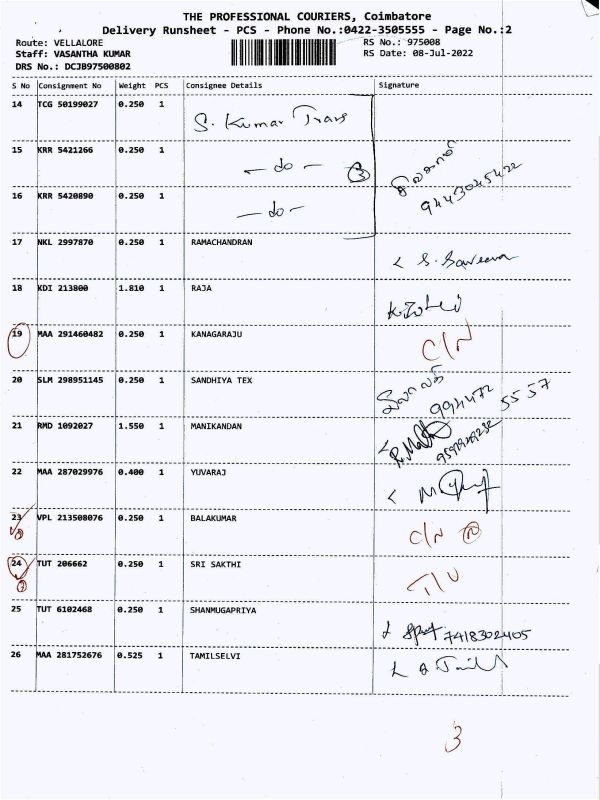 THE PROFESSIONAL COURIERS, Coimbatore
Delivery Runsheet - PCS - Phone No.:0422-3505555 - Page No.:2
Route: VELLALORE
RS No.: 975008
Staff: VASANTHA KUMAR
RS Date: 08-Jul-2022
DRS No.: DCJB97500802
S No Consignment No Weight PCS Consignee Details Signature
14 TCG 50199027 0.250 1 S. Kumar Trans
15 KRR 5421266 0.250 1 - do - 3
16 KRR 5420890 0.250 1 - do - 9443045422
17 NKL 2997870 0.250 1 RAMACHANDRAN
18 KDI 213800 1.810 1 RAJA
19 MAA 291460482 0.250 1 KANAGARAJU C/N
20 SLM 298951145 0.250 1 SANDHIYA TEX 994472 5557
21 RMD 1092027 1.550 1 MANIKANDAN
22 MAA 287029976 0.400 1 YUVARAJ
23 VPL 213508076 0.250 1 BALAKUMAR C/N
24 TUT 206662 0.250 1 SRI SAKTHI
25 TUT 6102468 0.250 1 SHANMUGAPRIYA 7418302405
26 MAA 281752676 0.525 1 TAMILSELVI
3